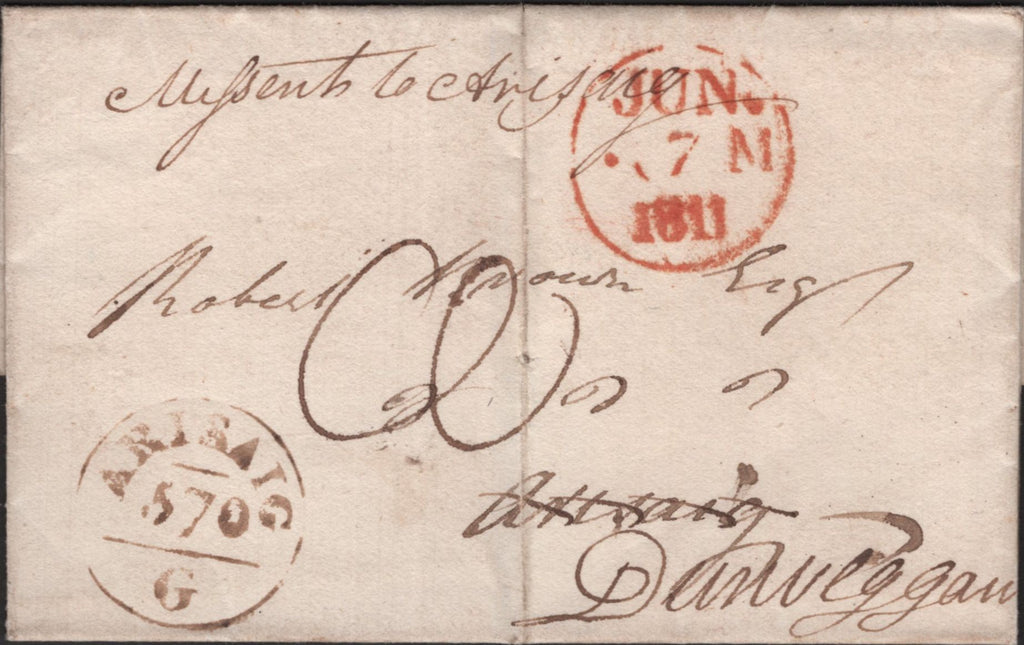 Missents to Arisaig
JUN.
7 M
1811
Robert Brown Esqr
ARISAIG
570
G
Arisaig
Dunveggan